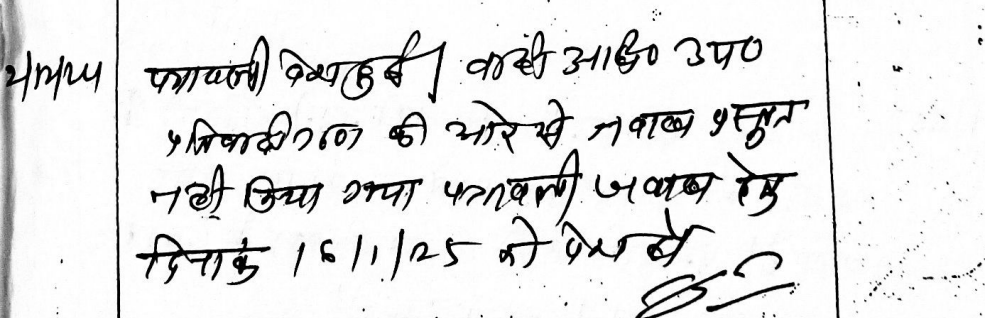 पत्रावली पेश हुई। वादी अधि० उप०
प्रतिवादीगण की ओर से जवाब प्रस्तुत
नही किया गया पत्रावली जवाब हेतु
दिनांक 16/1/25 को पेश हो